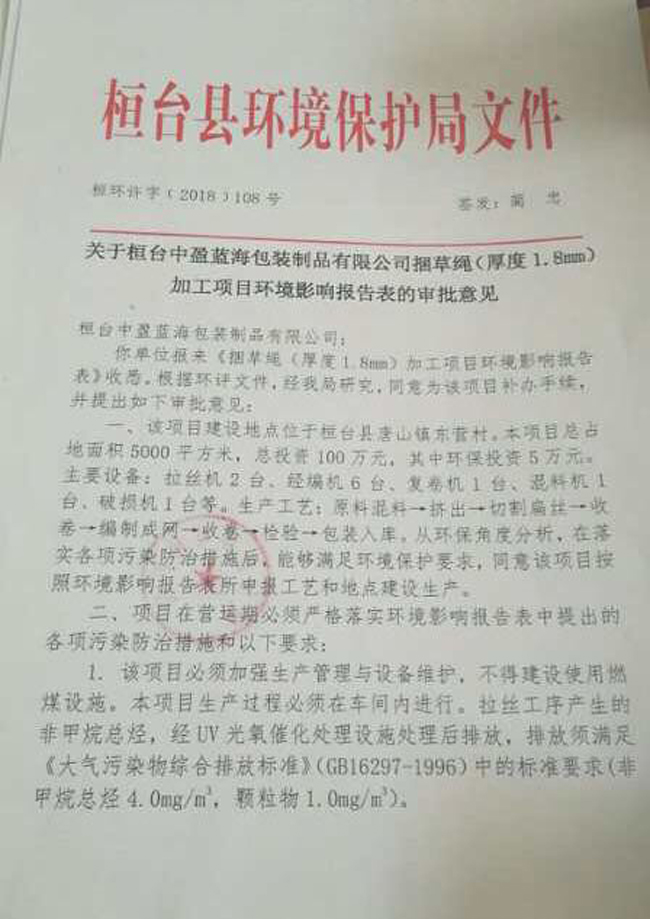 桓台县环境保护局文件
桓环许字〔2018〕108号 签发：蔺 忠
关于桓台中盈蓝海包装制品有限公司捆草绳（厚度1.8mm）
加工项目环境影响报告表的审批意见
桓台中盈蓝海包装制品有限公司：
你单位报来《捆草绳（厚度1.8mm）加工项目环境影响报告
表》收悉。根据环评文件，经我局研究，同意为该项目补办手续，
并提出如下审批意见：
一、该项目建设地点位于桓台县唐山镇东营村。本项目总占
地面积5000平方米，总投资100万元，其中环保投资5万元。
主要设备：拉丝机2台、经编机6台、复卷机1台、混料机1
台、破损机1台等。生产工艺：原料混料→挤出→切割扁丝→收
卷→编制成网→收卷→检验→包装入库。从环保角度分析，在落
实各项污染防治措施后，能够满足环境保护要求，同意该项目按
照环境影响报告表所申报工艺和地点建设生产。
二、项目在营运期必须严格落实环境影响报告表中提出的
各项污染防治措施和以下要求：
1. 该项目必须加强生产管理与设备维护，不得建设使用燃
煤设施。本项目生产过程必须在车间内进行。拉丝工序产生的
非甲烷总烃，经UV光氧催化处理设施处理后排放，排放须满足
《大气污染物综合排放标准》(GB16297-1996)中的标准要求(非
甲烷总烃4.0mg/m³，颗粒物1.0mg/m³)。